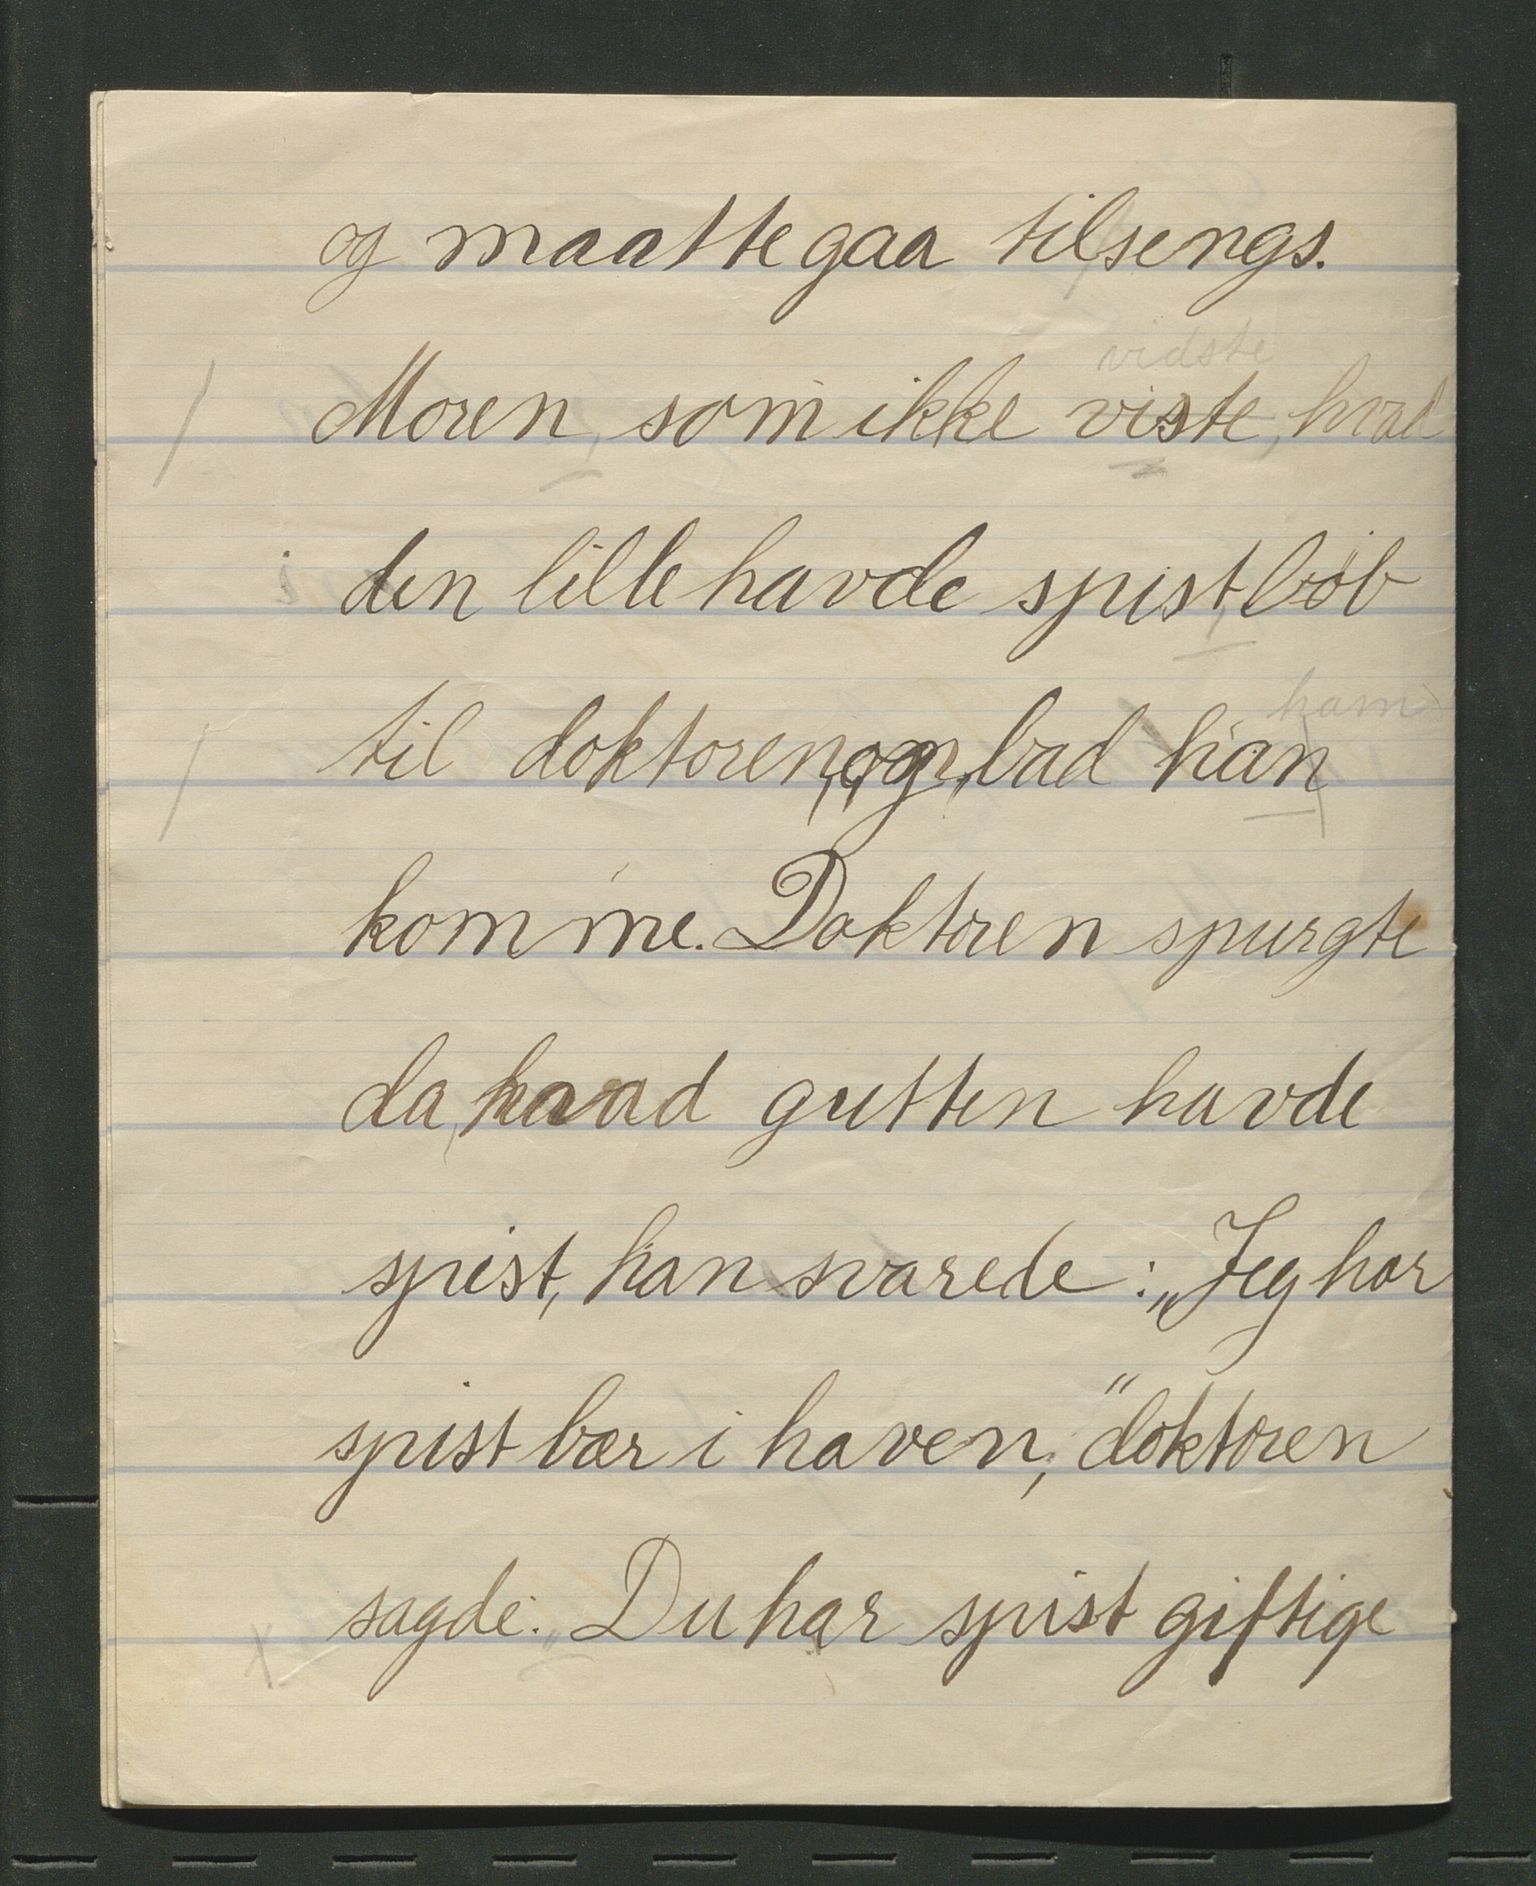 og maatte gaa tilsengs.
vidste
Moren, som ikke viste, hvad
i den lille havde spist, løb
ham
til doktoren, og bad han
komme. Doktoren spurgte
da, hvad gutten havde
spist, han svarede: „Jeg har
spist bær i haven," doktoren
sagde: „Du har spist giftige